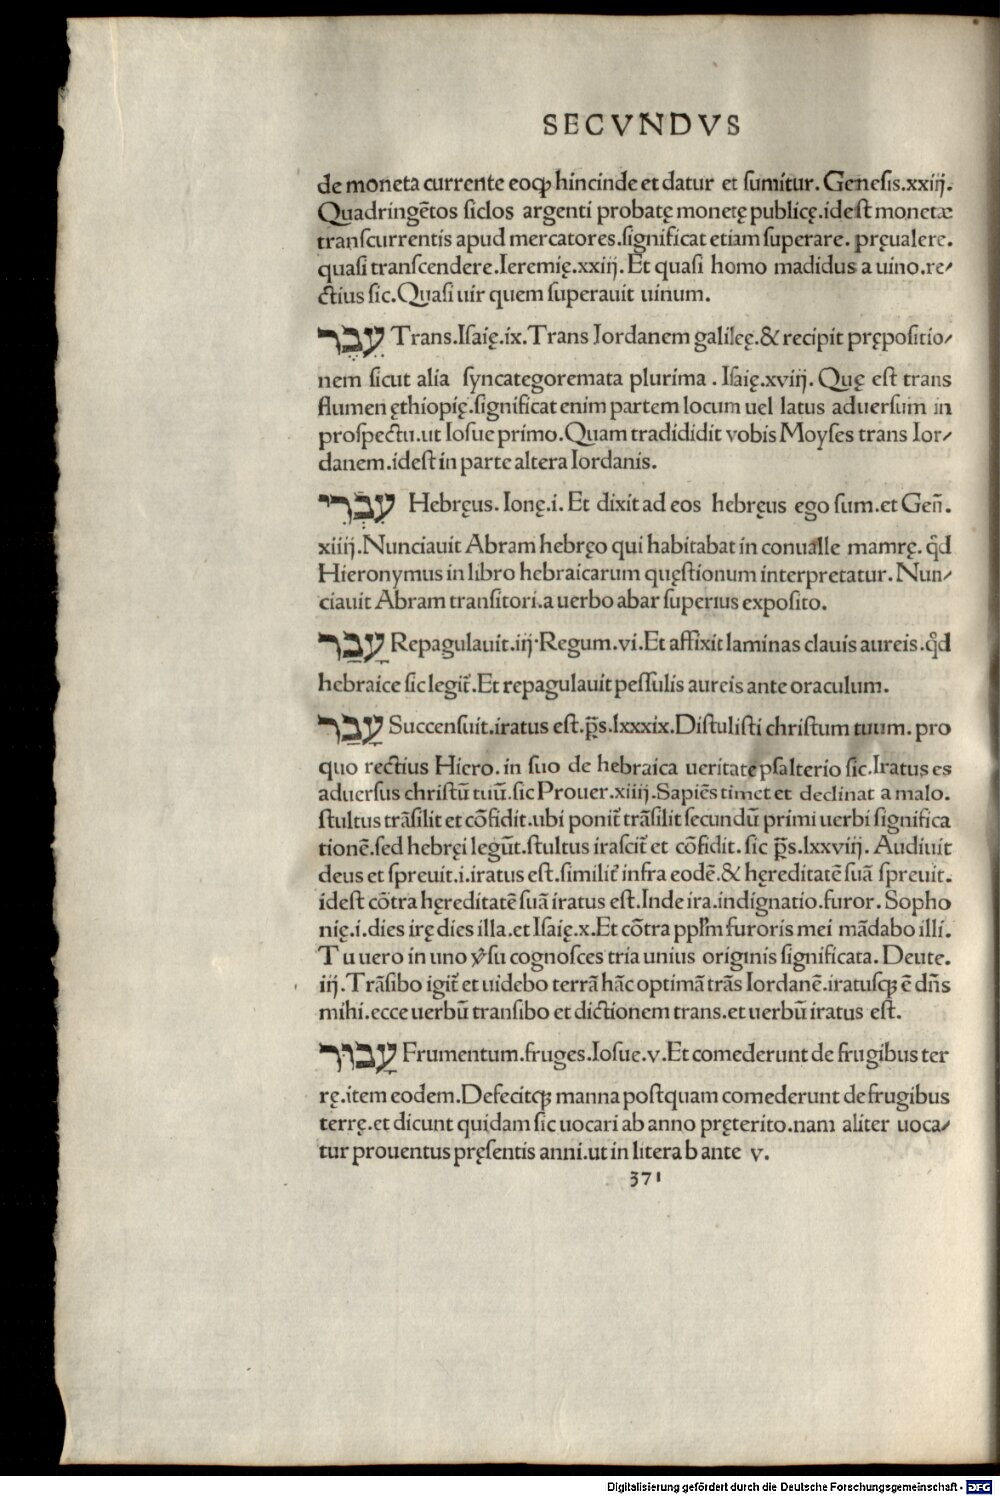 SECVNDVS
de moneta currente eoqꝫ hincinde et datur et sumitur. Genesis.xxiij.
Quadringētos siclos argenti probatę monetę publicę.idest monetæ
transcurrentis apud mercatores.significat etiam superare. pręualere.
quasi transcendere.Ieremię.xxiij. Et quasi homo madidus a uino.re/
ctius sic.Quasi uir quem superauit uinum.
עֵבֶר Trans.Isaię.ix.Trans Iordanem galileę.& recipit prępositio/
nem sicut alia syncategoremata plurima . Isaię.xviij. Quę est trans
flumen ęthiopię.significat enim partem locum uel latus aduersum in
prospectu.ut Iosue primo.Quam tradididit vobis Moyses trans Ior/
danem.idest in parte altera Iordanis.
עִבְרִי Hebręus. Ionę.i. Et dixit ad eos hebręus ego sum.et Geñ.
xiiij.Nunciauit Abram hebręo qui habitabat in conualle mamrę. qd̄
Hieronymus in libro hebraicarum quęstionum interpretatur. Nun/
ciauit Abram transitori.a uerbo abar superius exposito.
עָבַר Repagulauit.iij.Regum.vi.Et affixit laminas clauis aureis.qd̄
hebraice sic legit᷑.Et repagulauit pessulis aureis ante oraculum.
עָבַר Succensuit.iratus est.p̄s.lxxxix.Distulisti christum tuum. pro
quo rectius Hiero. in suo de hebraica ueritate psalterio sic.Iratus es
aduersus christū tuū.sic Prouer.xiiij.Sapiēs timet et declinat a malo.
stultus trāsilit et cōfidit.ubi ponit᷑ trāsilit secundū primi uerbi significa
tionē.sed hebręi legūt.stultus irascit᷑ et cōfidit. sic p̄s.lxxviij. Audiuit
deus et spreuit.i.iratus est.similit᷑ infra eodē.& hęreditatē suā spreuit.
idest cōtra hęreditatē suā iratus est.Inde ira.indignatio.furor. Sopho
nię.i.dies irę dies illa.et Isaię.x.Et cōtra ppl̄m furoris mei mādabo illi.
Tu uero in uno v̓su cognosces tria unius originis significata. Deute.
iij. Trāsibo igit᷑ et uidebo terrā hāc optimā trās Iordanē.iratusqꝫ ē dn̄s
mihi.ecce uerbū transibo et dictionem trans.et uerbū iratus est.
עָבוּר Frumentum.fruges.Iosue.v.Et comederunt de frugibus ter
rę.item eodem.Defecitqꝫ manna postquam comederunt de frugibus
terrę.et dicunt quidam sic uocari ab anno pręterito.nam aliter uoca/
tur prouentus pręsentis anni.ut in litera b ante v.
371
Digitalisierung gefördert durch die Deutsche Forschungsgemeinschaft - DFG